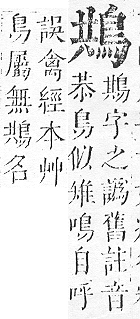 字之譌舊註音
恭鳥似雉鳴自呼
誤禽經本艸
鳥屬無名